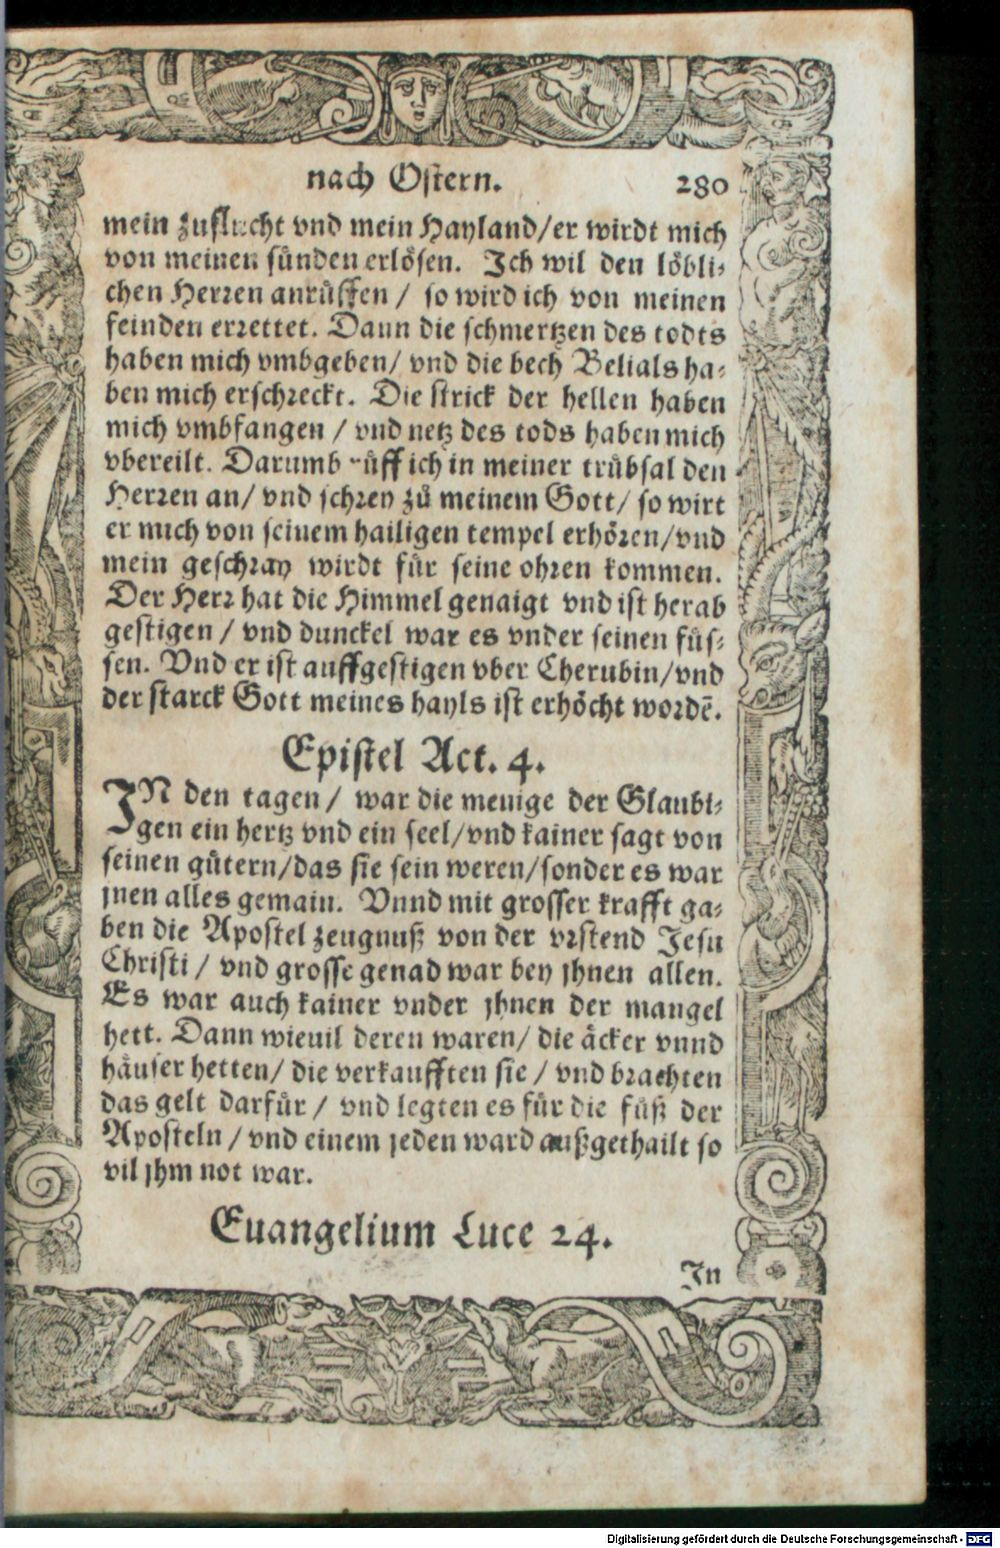 nach Ostern. 280
mein zuflucht vnd mein Hayland/er wirdt mich
von meinen sünden erlösen. Ich wil den löbli-
chen Herren anrůffen / so wird ich von meinen
feinden errettet. Dann die schmertzen des todts
haben mich vmbgeben/ vnd die bech Belials ha-
ben mich erschreckt. Die strick der hellen haben
mich vmbfangen / vnd netz des tods haben mich
vbereilt. Darumb růff ich in meiner trůbsal den
Herren an/ vnd schrey zů meinem Gott/ so wirt
er mich von seinem hailigen tempel erhören/vnd
mein geschray wirdt für seine ohren kommen.
Der Herr hat die Himmel genaigt vnd ist herab
gestigen / vnd dunckel war es vnder seinen füs-
sen. Vnd er ist auffgestigen vber Cherubin/vnd
der starck Gott meines hayls ist erhöcht wordē.
Epistel Act. 4.
IN den tagen / war die menige der Glaubi-
gen ein hertz vnd ein seel/vnd kainer sagt von
seinen gůtern/das sie sein weren/sonder es war
jnen alles gemain. Vnnd mit grosser krafft ga-
ben die Apostel zeugnuß von der vrstend Jesu
Christi / vnd grosse genad war bey jhnen allen.
Es war auch kainer vnder jhnen der mangel
hett. Dann wieuil deren waren/ die äcker vnnd
häuser hetten/ die verkaufften sie / vnd brachten
das gelt darfür / vnd legten es für die füß der
Aposteln / vnd einem jeden ward außgethailt so
vil jhm not war.
Euangelium Luce 24.
In
Digitalisierung gefördert durch die Deutsche Forschungsgemeinschaft - DFG